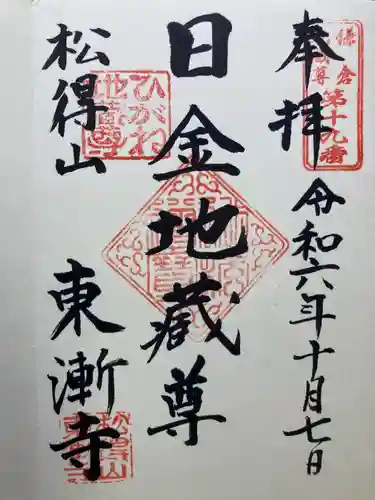 奉拝
鎌倉
地蔵尊
第十九番
令和六年十月七日
日金地蔵尊
ひがね
地蔵尊
松得山
東漸寺